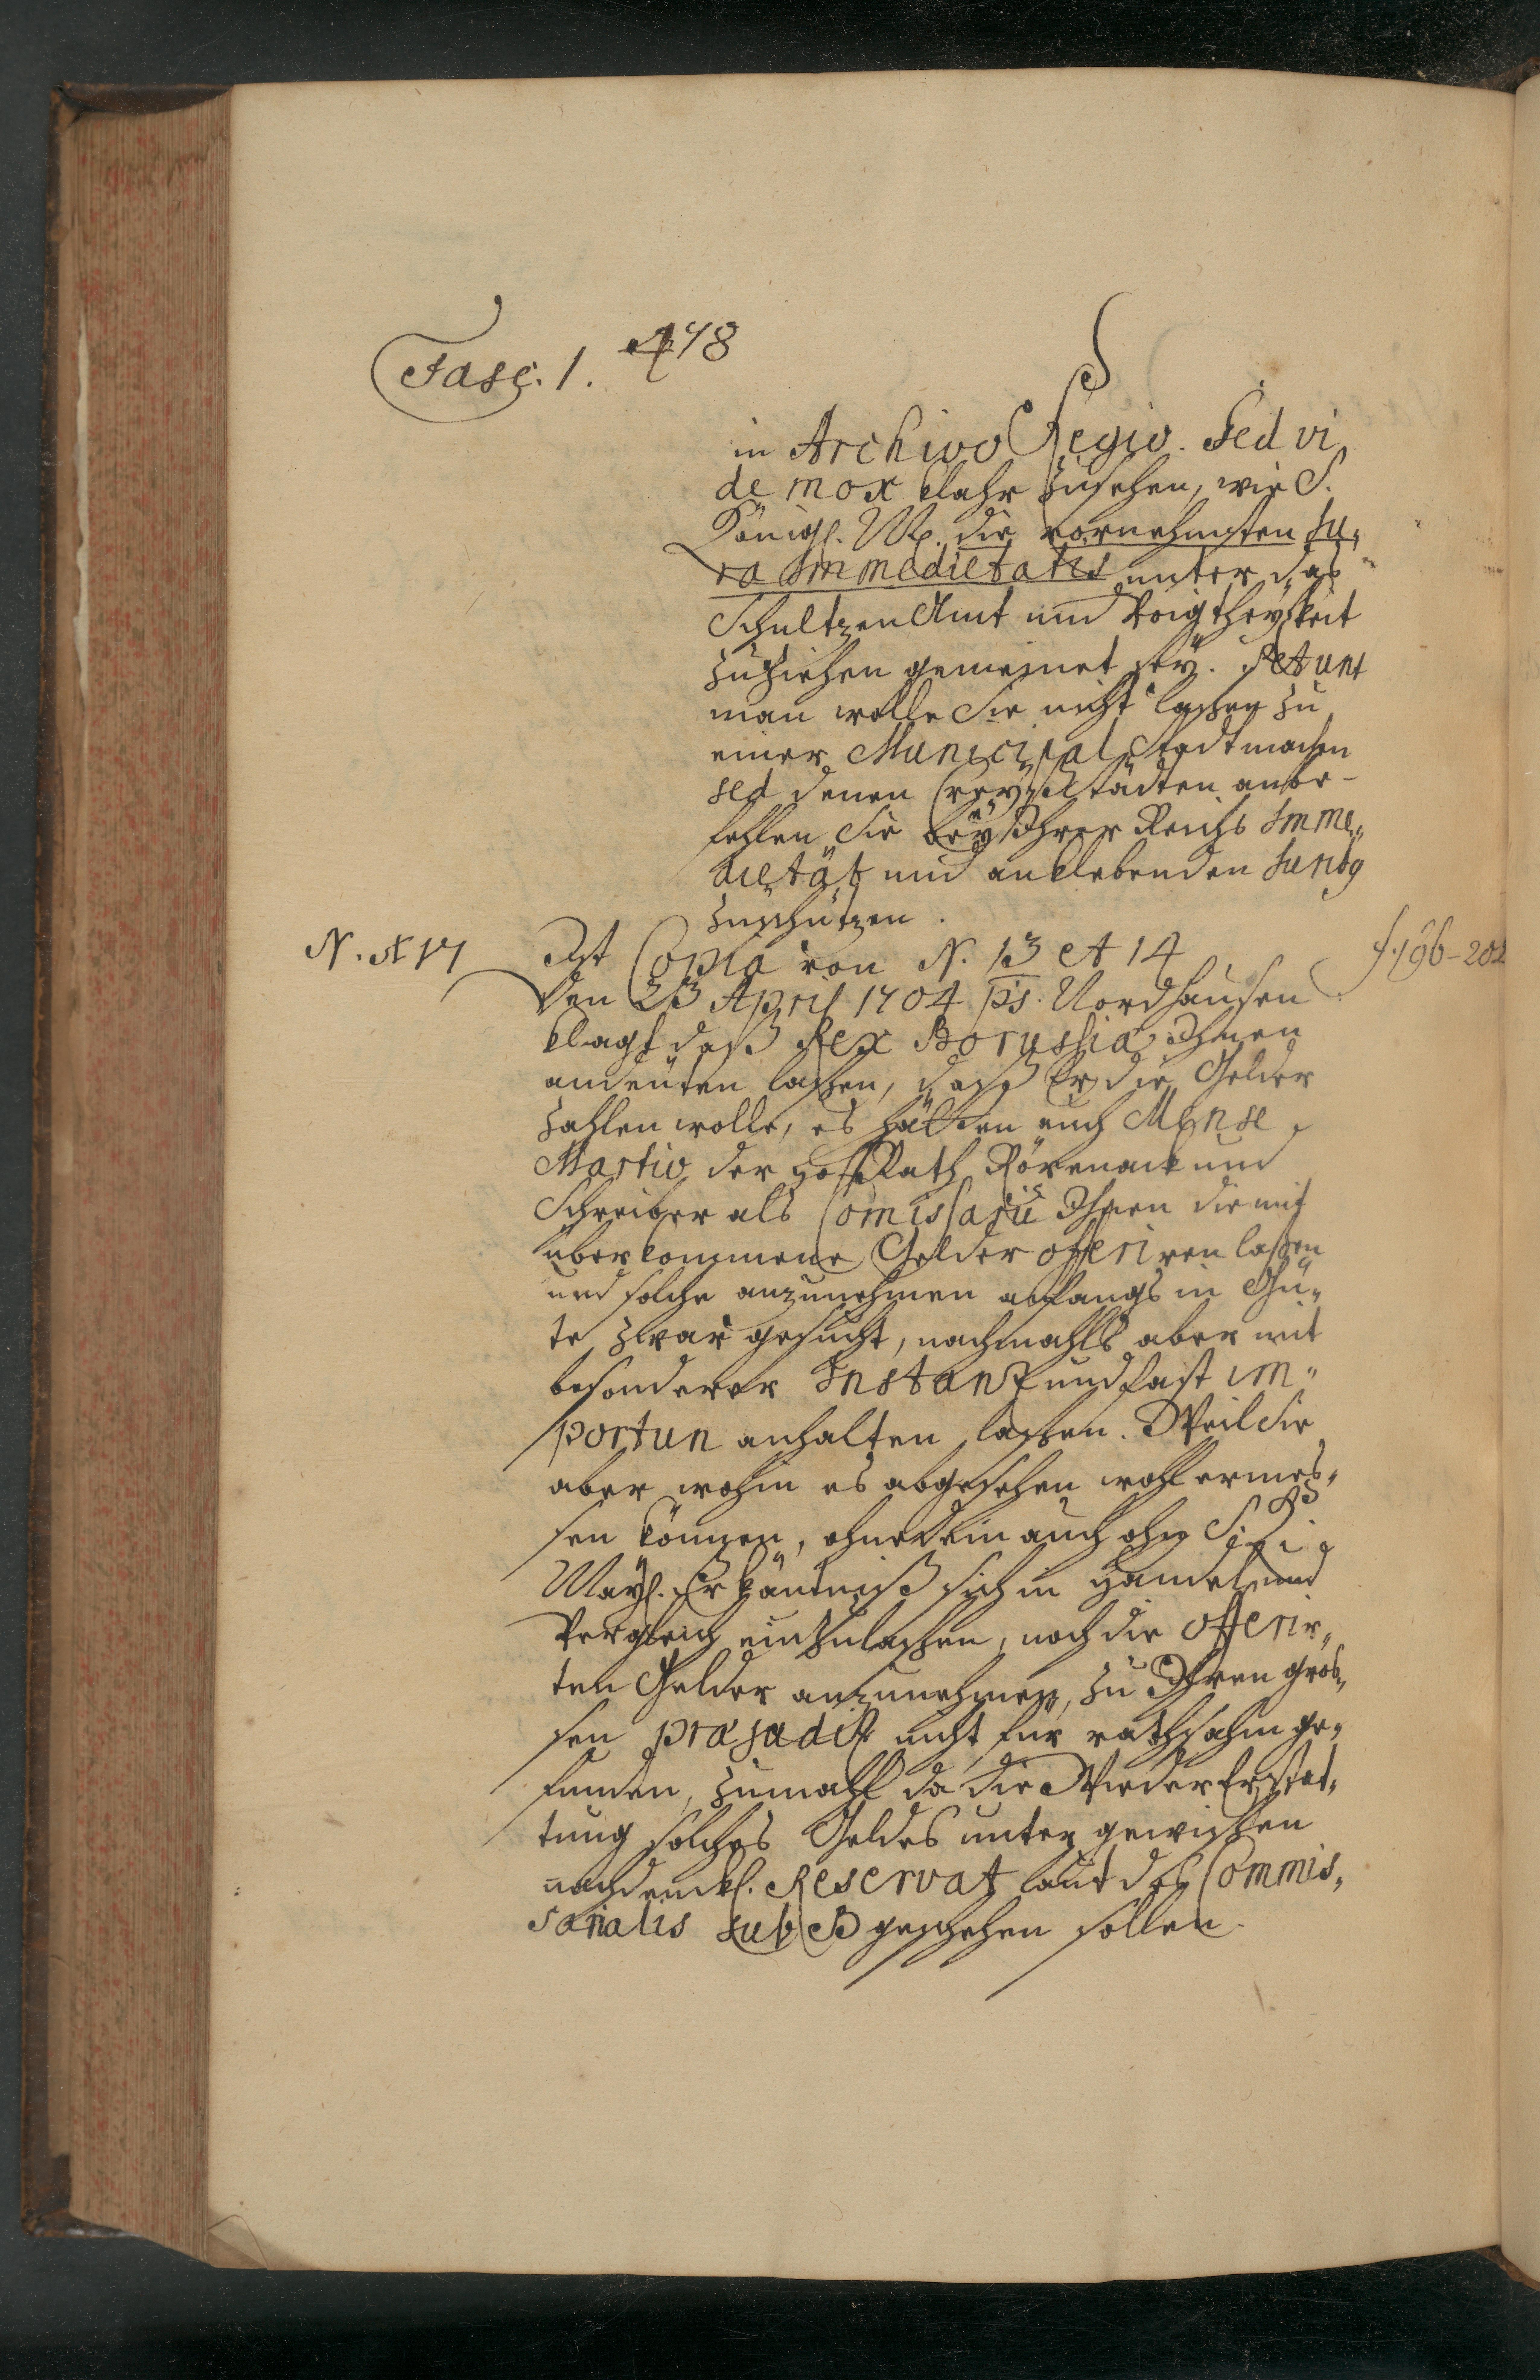 Fasc. 1. 478
in Archivo Regio. Sed vi
de mox klahr zusehen, wie S.
Königl. M. die vornehmsten Ju,
ra Immedietatis unter das
Schultzen Amt und Voigtheylkeit
zuziehen gemeinet sey. Petunt
man wolle Sie nicht lassen zu
einer Municipal Stadt machen
sed denen Creyß Städten anbe-
fehlen Sie bey Ihrer Reichs Imme,,
dietät und anklebenden
zuschützen.
N. 17 Ist Copia von N. 13 et 14 f. 196-202
Den 23 April 1704 ps. Nordhausen
klagt daß Rex Borussiæ Ihnen
andeuten lassen, daß Er die Gelder
zahlen wolle, es hätten auch Mense
Martio der Hoff Rath Röpenack und
Schreiber als Comissarii Ihnen die mit
überkommene Gelder offeriren lassen
und solche anzunehmen anfangs in Gü,
te zwar gesucht, nachmahls aber mit
besonderer Instanz und fast im,,
portun anhalten lassen. Weil Sie
aber wohin es abgesehen wohl ermes,,
sen können, ohnedem auch ohne
May. Erkäntniß sich in Handel und
Vergleich einzulassen, noch die offerir,,
ten Gelder anzunehmen, zu Ihren gros,
sen præjudiz nicht für rathsahm ge,
funden, zumahl da die Wieder Erstat,
tung solches Geldes unter gewissen
nachdenckl. Reservat laut des Commis,
sarialis sub B geschehen sollen.